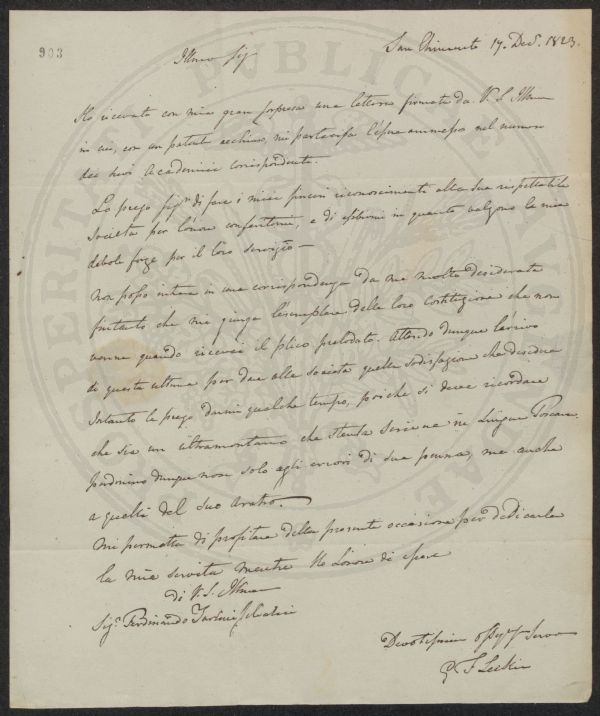 903
Illmo Sig
San Chimento 17. Decr. 1823.
Ho ricevuta con mia gran sorpresa una lettera firmata da V. S. Illma
in cui, con un patente acchiuso, mi partecipa l'esser ammesso nel numero
dei suoi Academici corrispondenti.
La prego sigre di fare i miei sinceri riconoscimenti alla sua rispettabile
Società per l'onore conferitomi, e di esibirmi in quanto valgono le mie
debole forze per il loro servizio —
Non posso entrare in una corrispondenza da me molto desiderata
fintanto che mi giunga l'esemplare delle loro Costituzione che non
venne quando ricevei il plico prelodato. Attendo dunque l'arrivo
di questa ultima per dare alla società quella sodisfazione che desidera
Intanto la prego darmi qualche tempo, poiche si deve ricordare
che sia un ultramontano che stenta scrivere in Lingua Toscana.
Perdonino dunque non solo agli errori di sua penna, ma anche
a quelli del suo aratro.
Mi permetta di profitare della presente occasione per dedicarle
la mia servitù mentre Ho L'onore di essere
di V. S. Illma
Sigr. Ferdinando
Devotissimo Servo
G F Leckie
PERITAT PUBLICAE